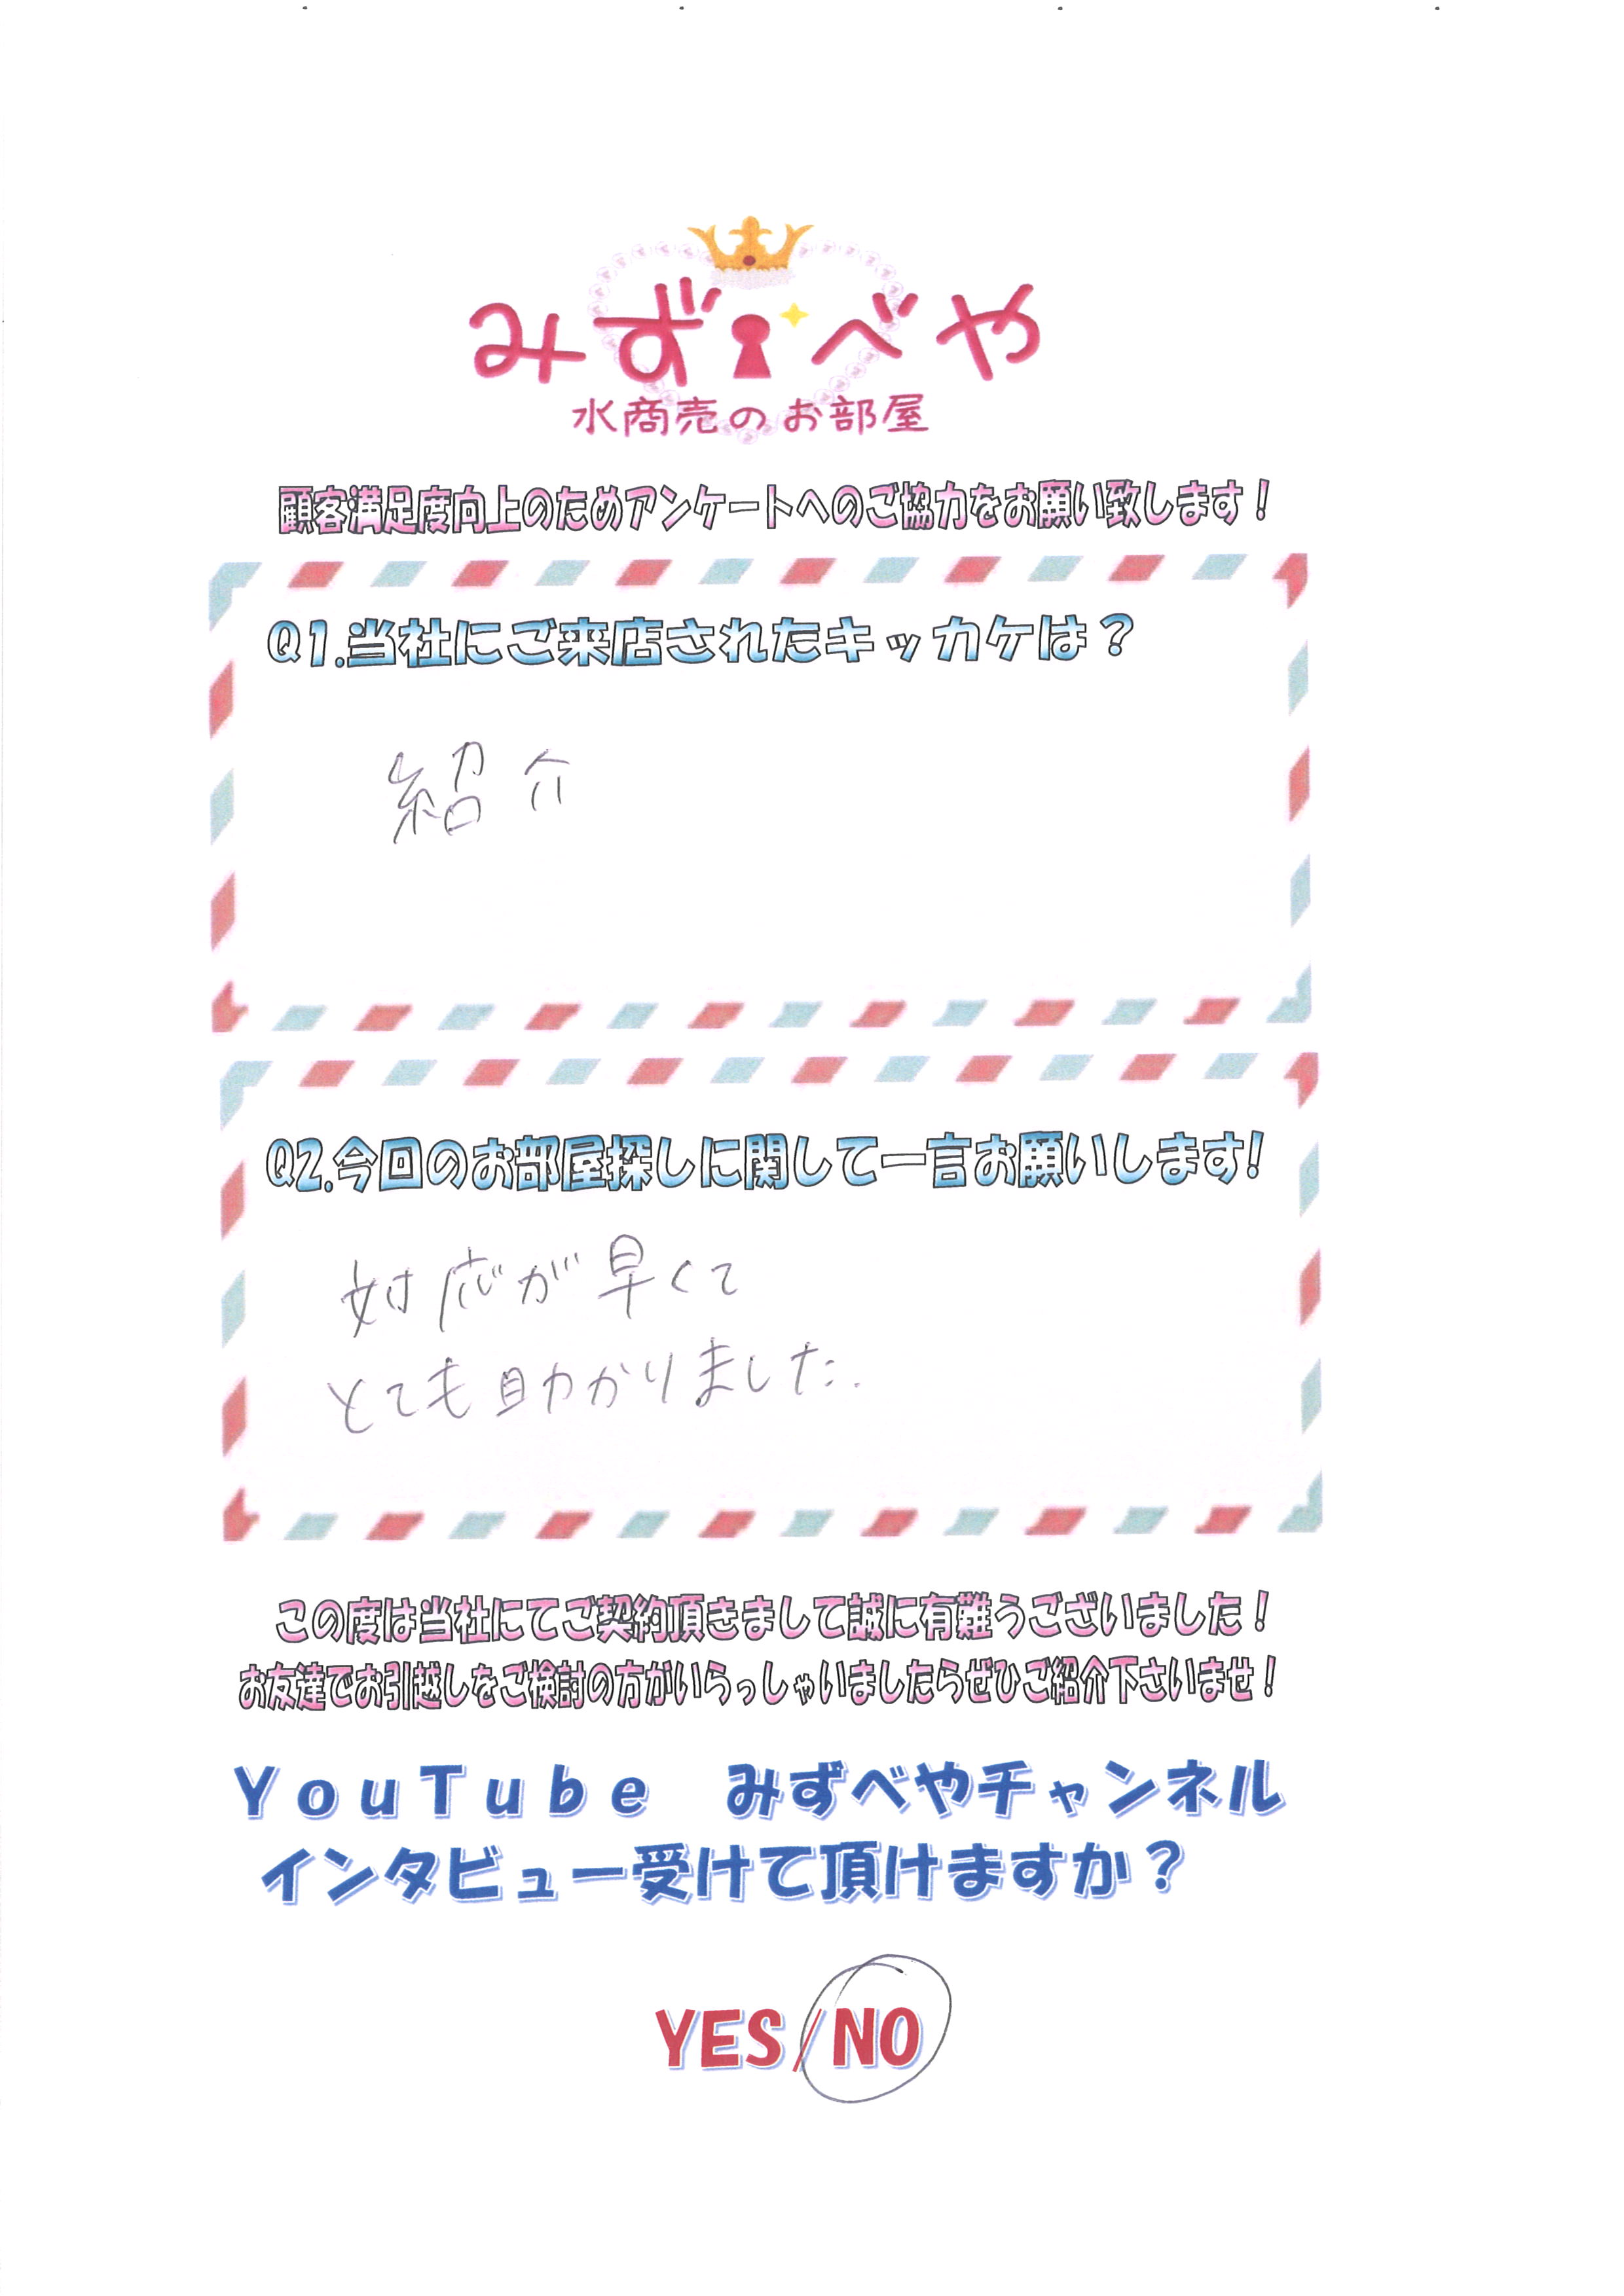 みずべや
水商売のお部屋
顧客満足度向上のためアンケートへのご協力をお願い致します！
Q1.当社にご来店されたキッカケは？
紹介
Q2.今回のお部屋探しに関して一言お願いします!
対応が早くて
とても助かりました.
この度は当社にてご契約頂きまして誠に有難うございました！
お友達でお引越しをご検討の方がいらっしゃいましたらぜひご紹介下さいませ！
YouTube　みずべやチャンネル
インタビュー受けて頂けますか？
YES/NO